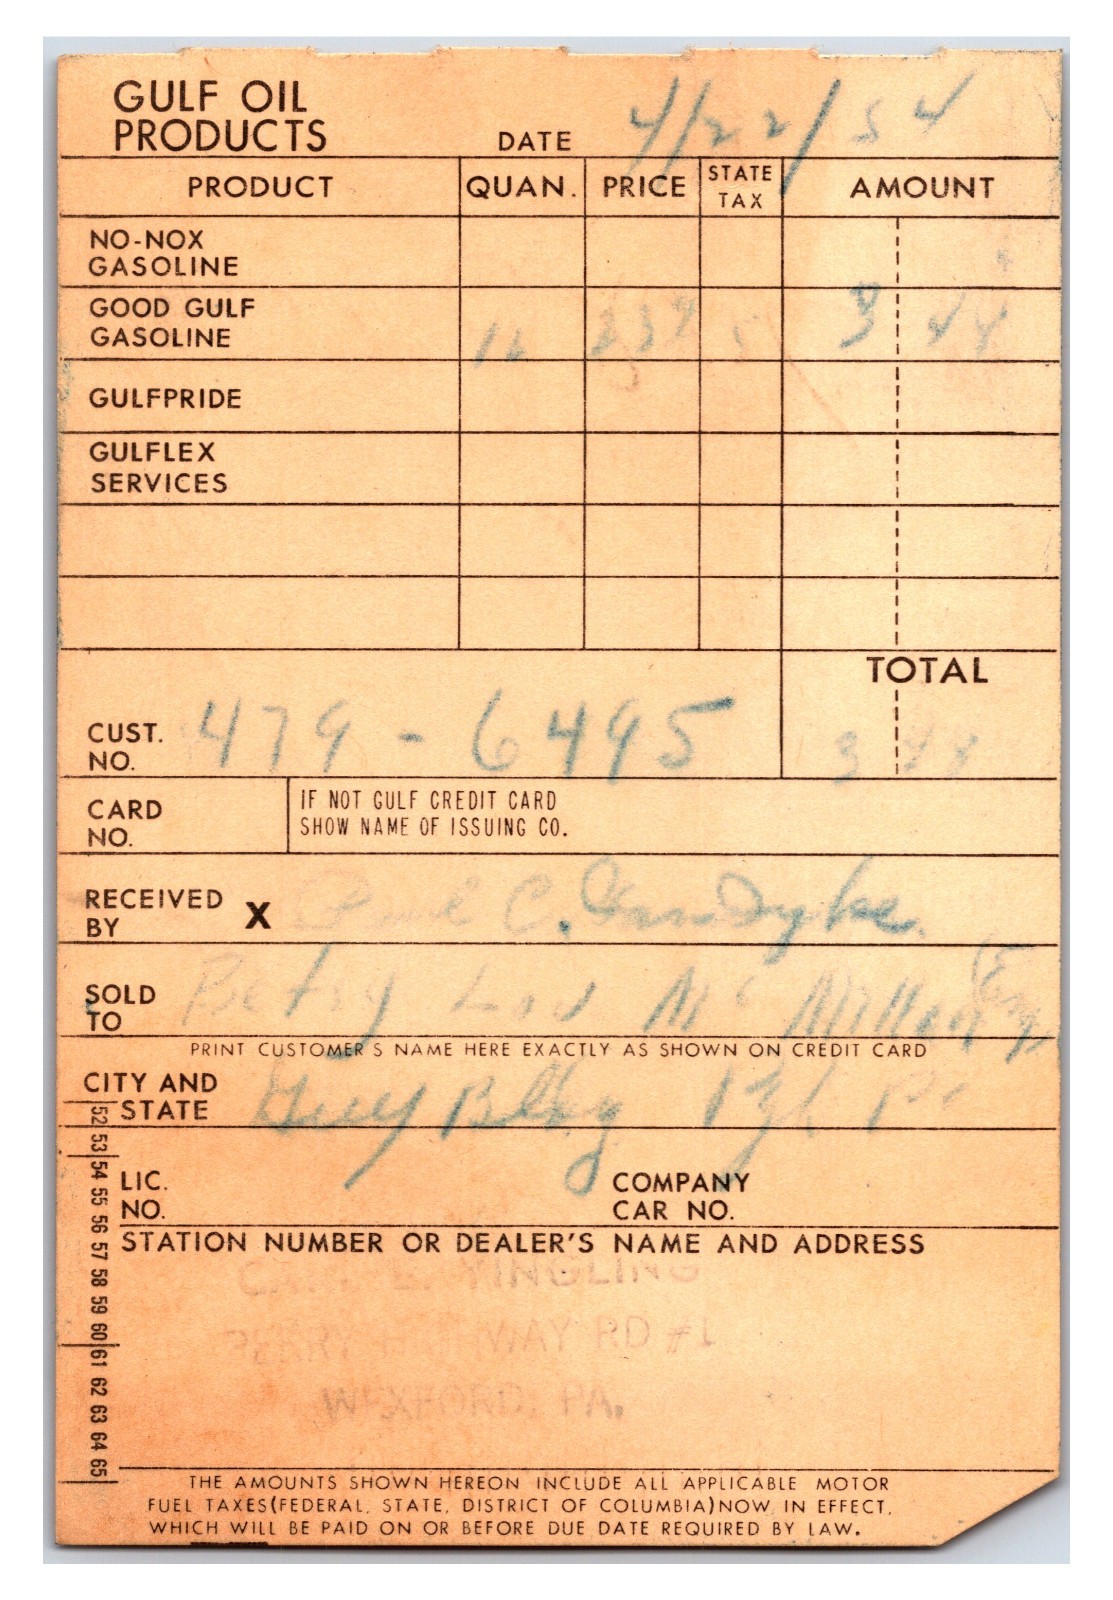 GULF OIL
PRODUCTS
DATE 4/22/54
PRODUCT QUAN. PRICE STATE TAX AMOUNT
NO-NOX
GASOLINE
GOOD GULF
GASOLINE 3 44
GULFPRIDE
GULFLEX
SERVICES
TOTAL
CUST.
NO. 479-6495 3 44
CARD
NO.
IF NOT GULF CREDIT CARD
SHOW NAME OF ISSUING CO.
RECEIVED
BY X C. VanDyke
SOLD
TO Betsy Lou Mc
PRINT CUSTOMER'S NAME HERE EXACTLY AS SHOWN ON CREDIT CARD
CITY AND
STATE Bldg
52 53 54 55 56 57 58 59 60 61 62 63 64 65
LIC.
NO.
COMPANY
CAR NO.
STATION NUMBER OR DEALER'S NAME AND ADDRESS
E. YINGLING
PERRY HIGHWAY RD #1
WEXFORD, PA.
THE AMOUNTS SHOWN HEREON INCLUDE ALL APPLICABLE MOTOR
FUEL TAXES(FEDERAL, STATE, DISTRICT OF COLUMBIA)NOW IN EFFECT,
WHICH WILL BE PAID ON OR BEFORE DUE DATE REQUIRED BY LAW.